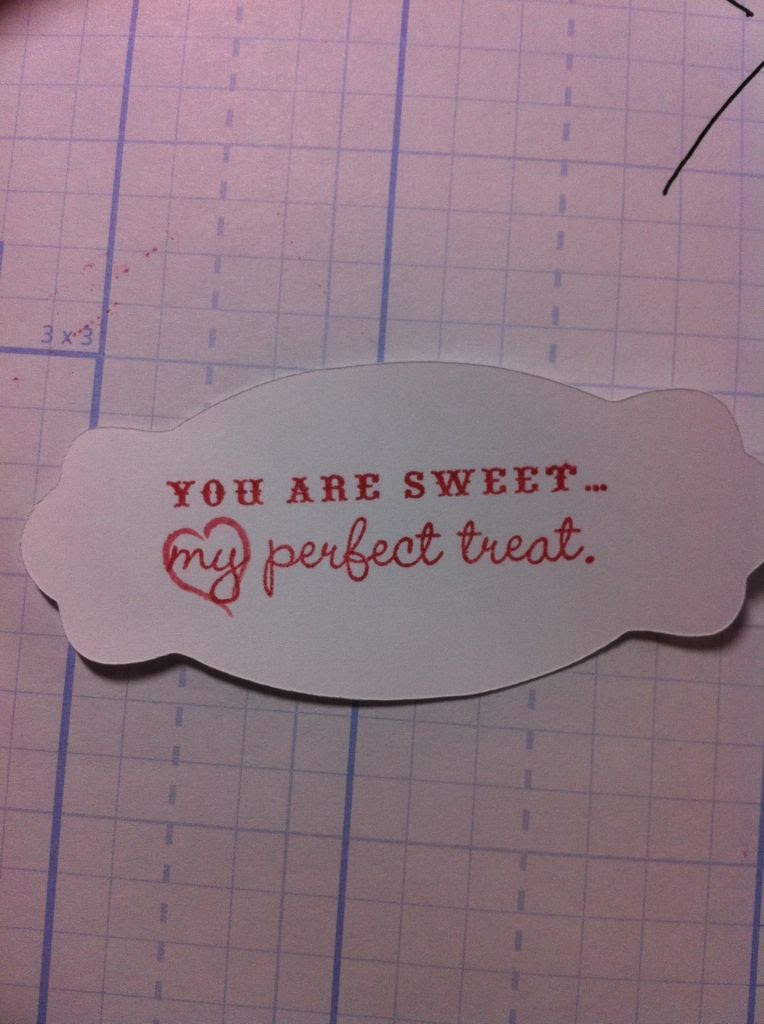 3 x 3
YOU ARE SWEET...
my perfect treat.